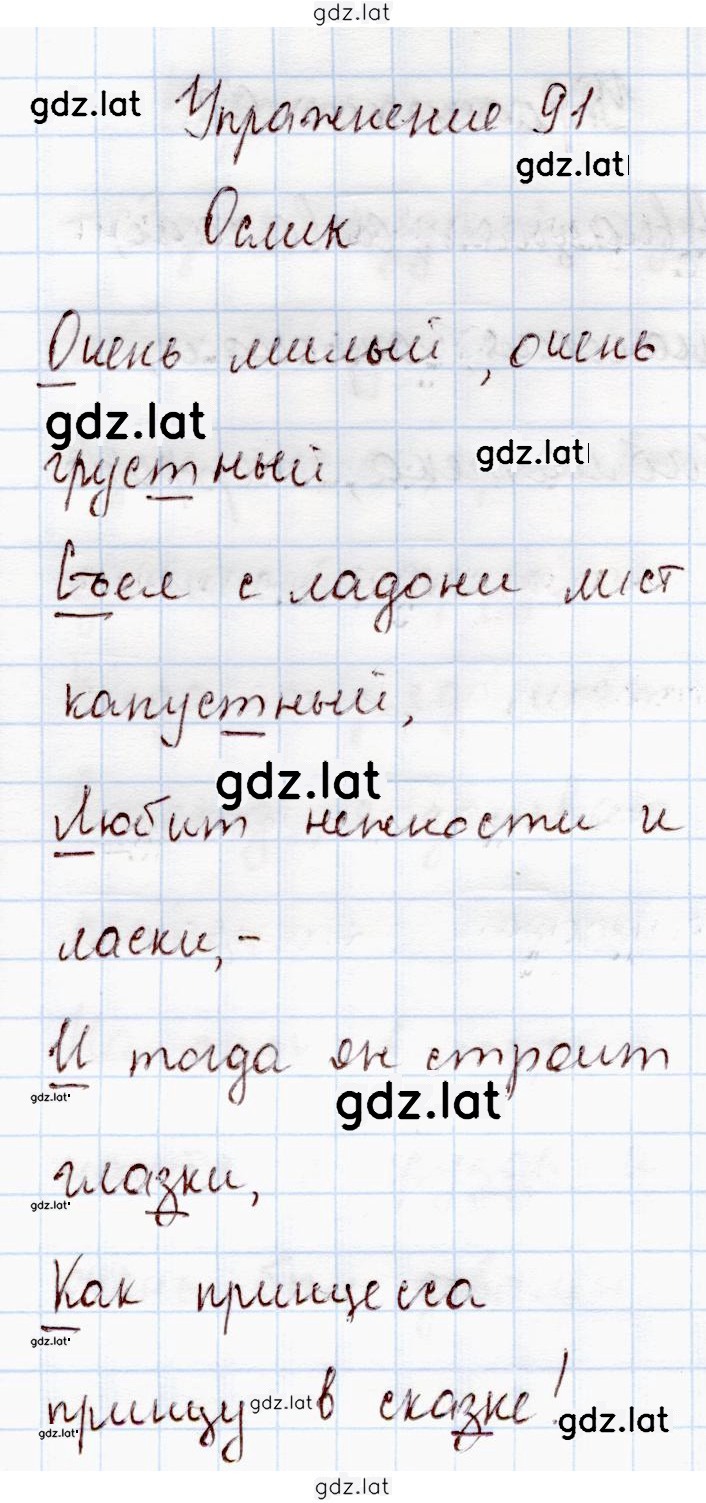 gdz.lat
gdz.lat Упражнение 91
gdz.lat
Ослик
Очень милый, очень
gdz.lat
грустный gdz.lat
Съел с ладони лист
капустный,
gdz.lat
Любит нежности и
ласки,-
И тогда он строит
gdz.lat gdz.lat
глазки,
gdz.lat
Как принцесса
gdz.lat
принцу gdz.lat в сказке!
gdz.lat gdz.lat
gdz.lat